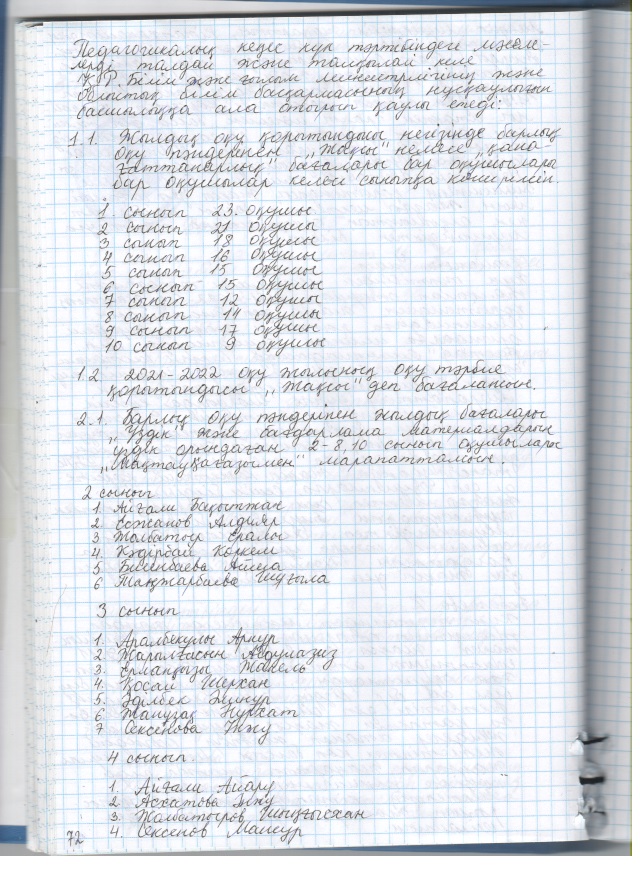 Педагогикалық кеңес күн тәртібіндегі мәселе-
лерді талдай және талқылай келе
Қ.Р. Білім және ғылым министрлігінің және
Облыстық білім басқармасының нұсқаулығын
басшылыққа ала отырып қаулы етеді:
1.1. Жылдық оқу қорытындысы негізінде барлық
оқу пәндерінен „Жақсы" немесе „қана-
ғаттанарлық" бағалары бар оқушылары
бар оқушылар келесі сыныпқа көшірілсін.
1. сынып 23. оқушы
2 сынып 21 оқушы
3 сынып 18 оқушы
4 сынып 16 оқушы
5 сынып 15 оқушы
6 сынып 15 оқушы
7 сынып 12 оқушы
8 сынып 14 оқушы
9 сынып 17 оқушы
10 сынып 9 оқушы
1.2 2021-2022 оқу жылының оқу тәрбие
қорытындысы „Жақсы" деп бағалансын.
2.1. Барлық оқу пәндерінен жылдық бағалары
„Үздік" және бағдарлама материалдарын
үздік орындаған 2-8,10 сынып оқушылары
„Мақтау қағазымен" марапатталсын.
2 сынып
1. Айғали Бақытжан
2. Сожанов Алдияр
3 Жолбатыр Ералы
4. Кәдірбай Көркем
5 Бисенбаева Айша
6 Таңжарбаева Шұғыла
3 сынып
1. Аралбекұлы Арнұр
2. Жарылғасын Абдулазиз
3. Ерланқызы Жанель
4. Қосай Шерхан
5. Әділбек
6 Жалузақ Нұрхат
7 Сексенова Інжу
4 сынып.
1. Айғали Айару
2. Асхатова Інжу
3. Жолбатыров Шыңғысхан
4. Сексенов Мансур
72